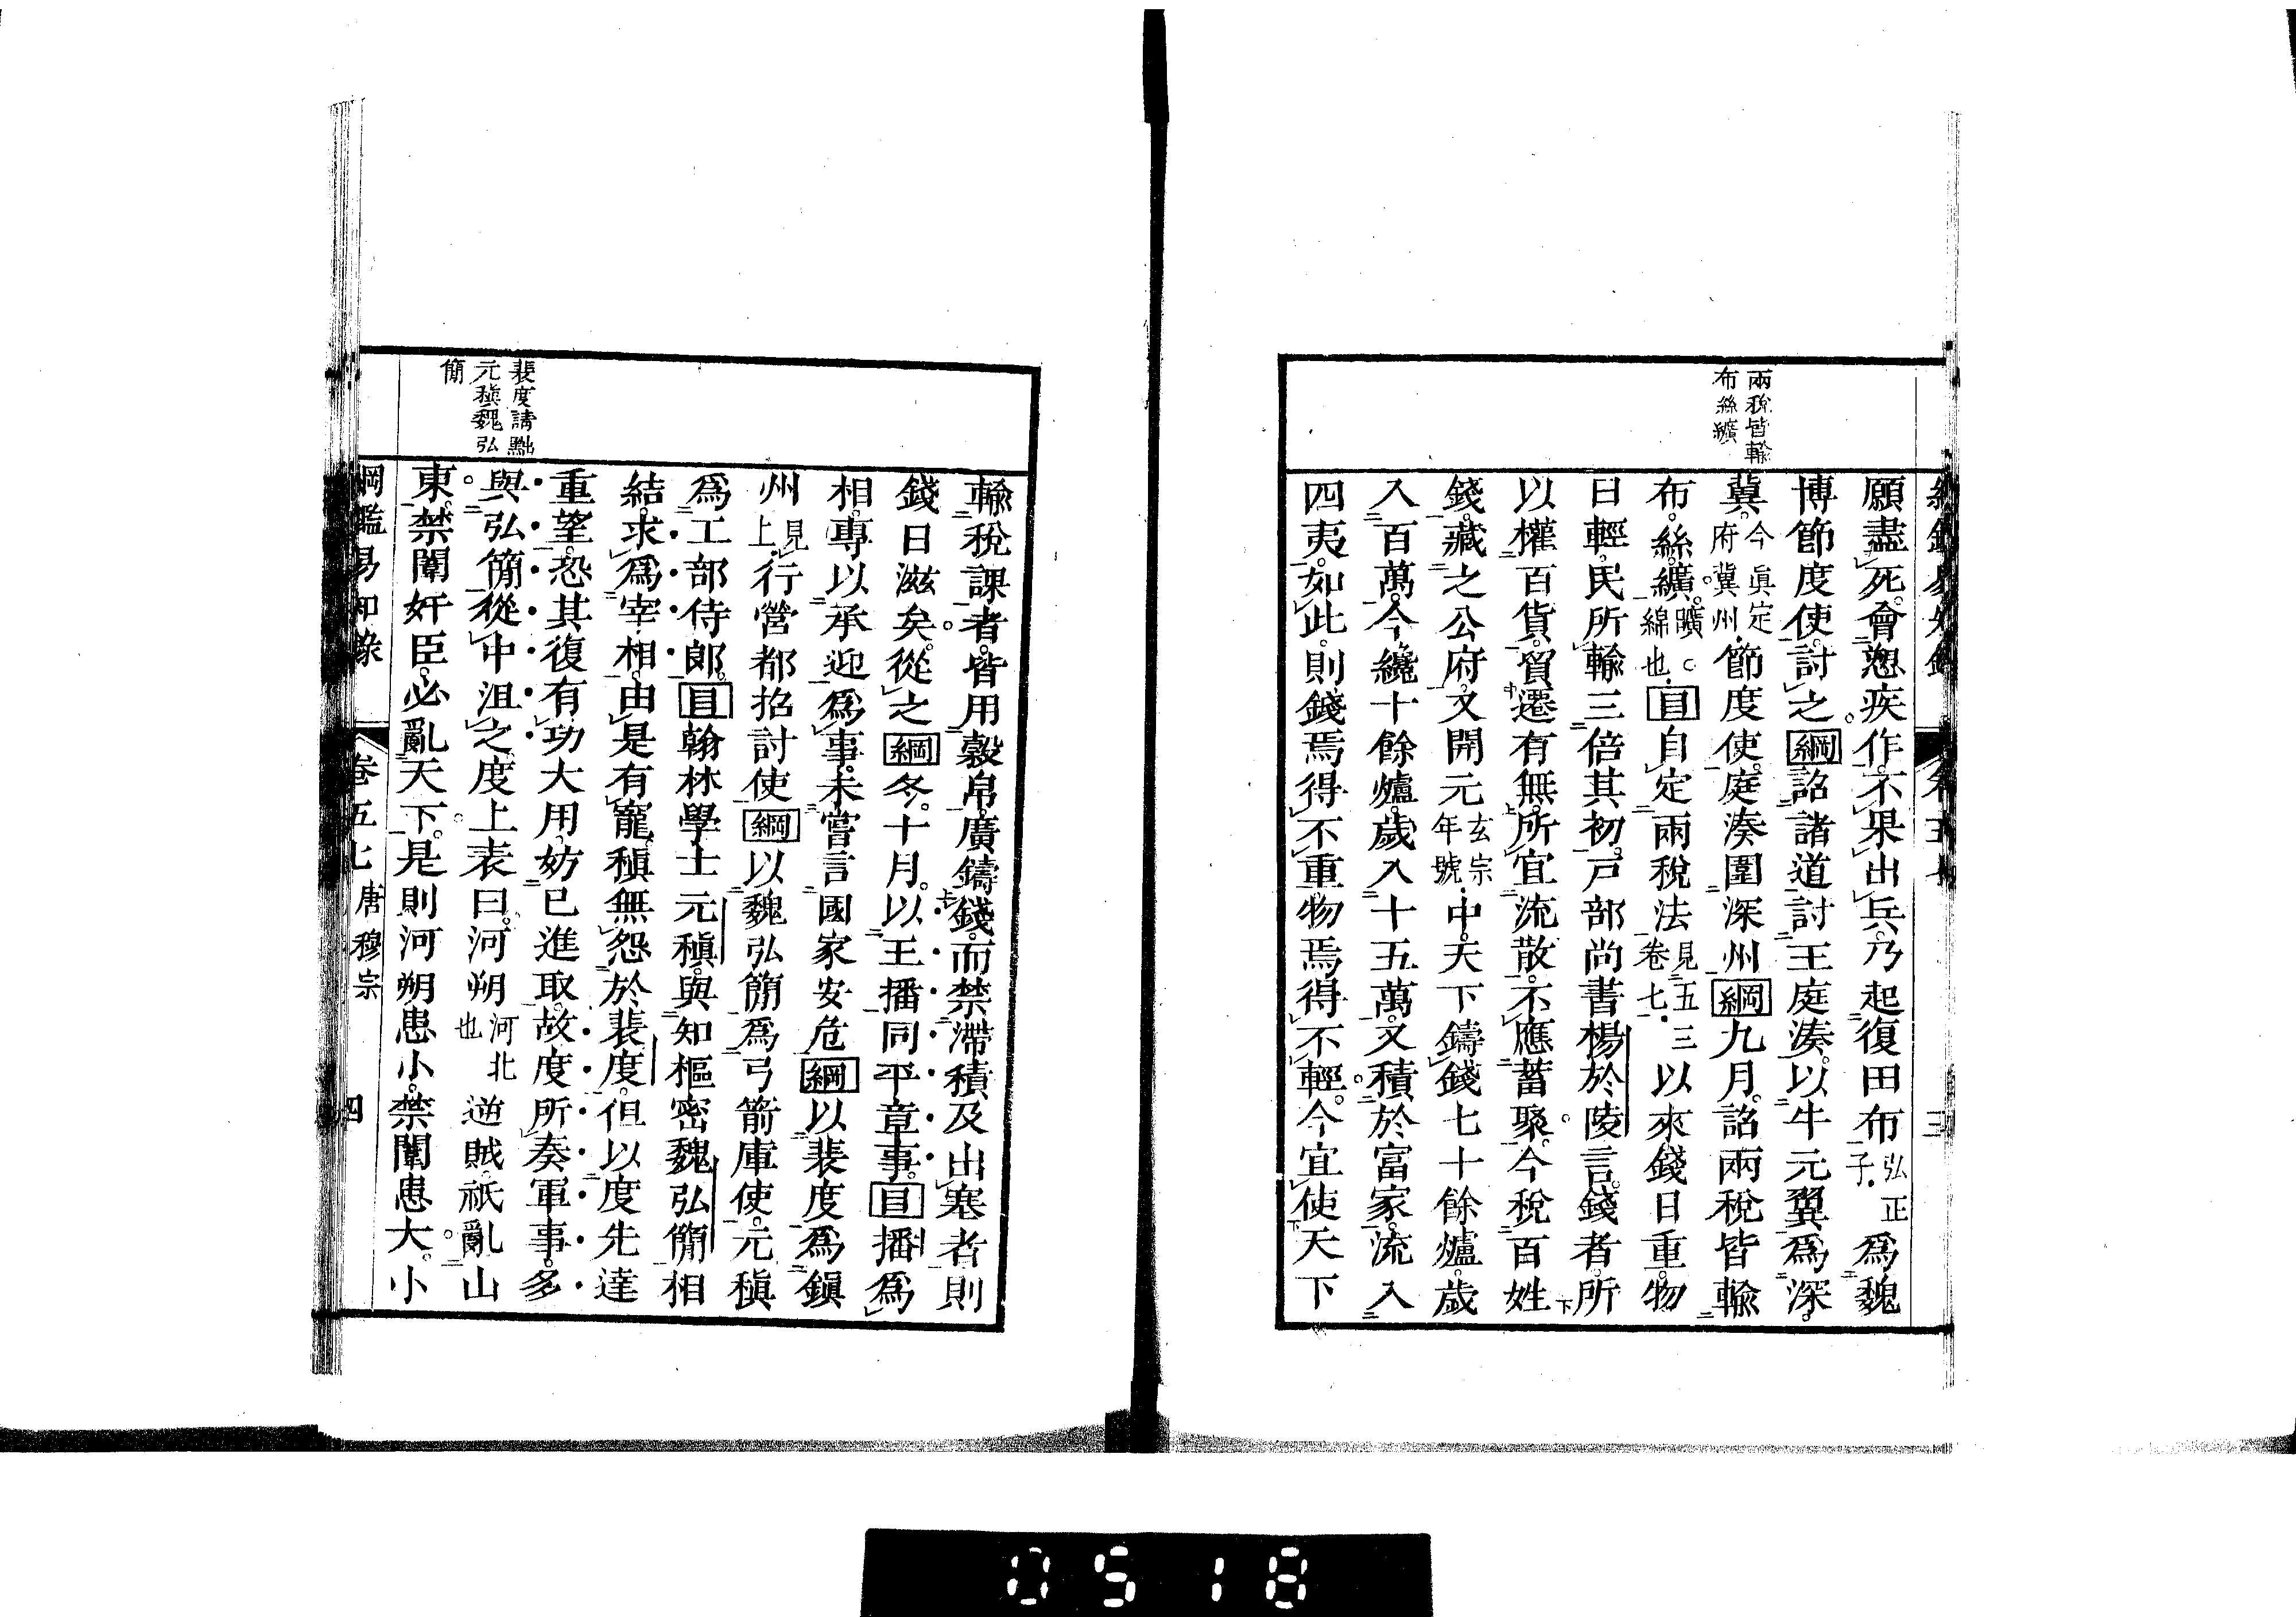 兩稅皆輸
布絲纊
願盡死會愬疾作不果出兵乃起復田布弘正子為魏
博節度使討之綱詔諸道討王庭湊以牛元翼為深
冀今眞定府冀州節度使庭湊圍深州綱九月詔兩稅皆輸
布絲纊曠綿也目自定兩稅法見五三卷七以來錢日重物
日輕民所輸三倍其初戶部尚書楊於陵言錢者所
以權百貨貿遷有無所宜流散不應蓄聚今稅百姓
錢藏之公府又開元玄宗年號中天下鑄錢七十餘爐歲
入百萬今纔十餘爐歲入十五萬又積於富家流入
四夷如此則錢焉得不重物焉得不輕今宜使天下
三
裴度請黜
元稹魏弘
簡
輸稅課者皆用穀帛廣鑄錢而禁滯積及出塞者則
錢日滋矣從之綱冬十月以王播同平章事目播為
相專以承迎為事未嘗言國家安危綱以裴度為鎭
州見上行營都招討使綱以魏弘簡為弓箭庫使元稹
為工部侍郎目翰林學士元稹與知樞密魏弘簡相
結求為宰相由是有寵稹無怨於裴度但以度先達
重望恐其復有功大用妨已進取故度所奏軍事多
與弘簡從中沮之度上表曰河朔河北也逆賊祇亂山
東禁闈奸臣必亂天下是則河朔患小禁闈患大小
綱鑑易知錄 卷五七 唐穆宗 四
0518